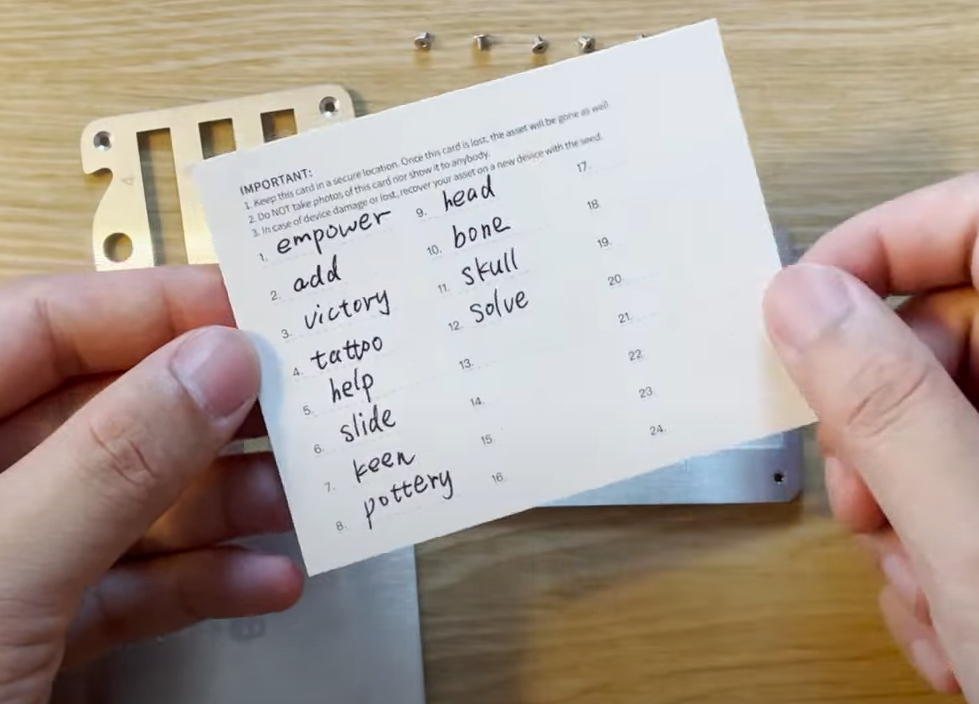 IMPORTANT:
1. Keep this card in a secure location. Once this card is lost, the asset will be gone as well.
2. Do NOT take photos of this card nor show it to anybody.
3. In case of device damage or lost, recover your asset on a new device with the seed.
1. empower
2. add
3. victory
4. tattoo
5. help
6. slide
7. keen
8. pottery
9. head
10. bone
11. skull
12. solve
13.
14.
15.
16.
17.
18.
19.
20.
21.
22.
23.
24.